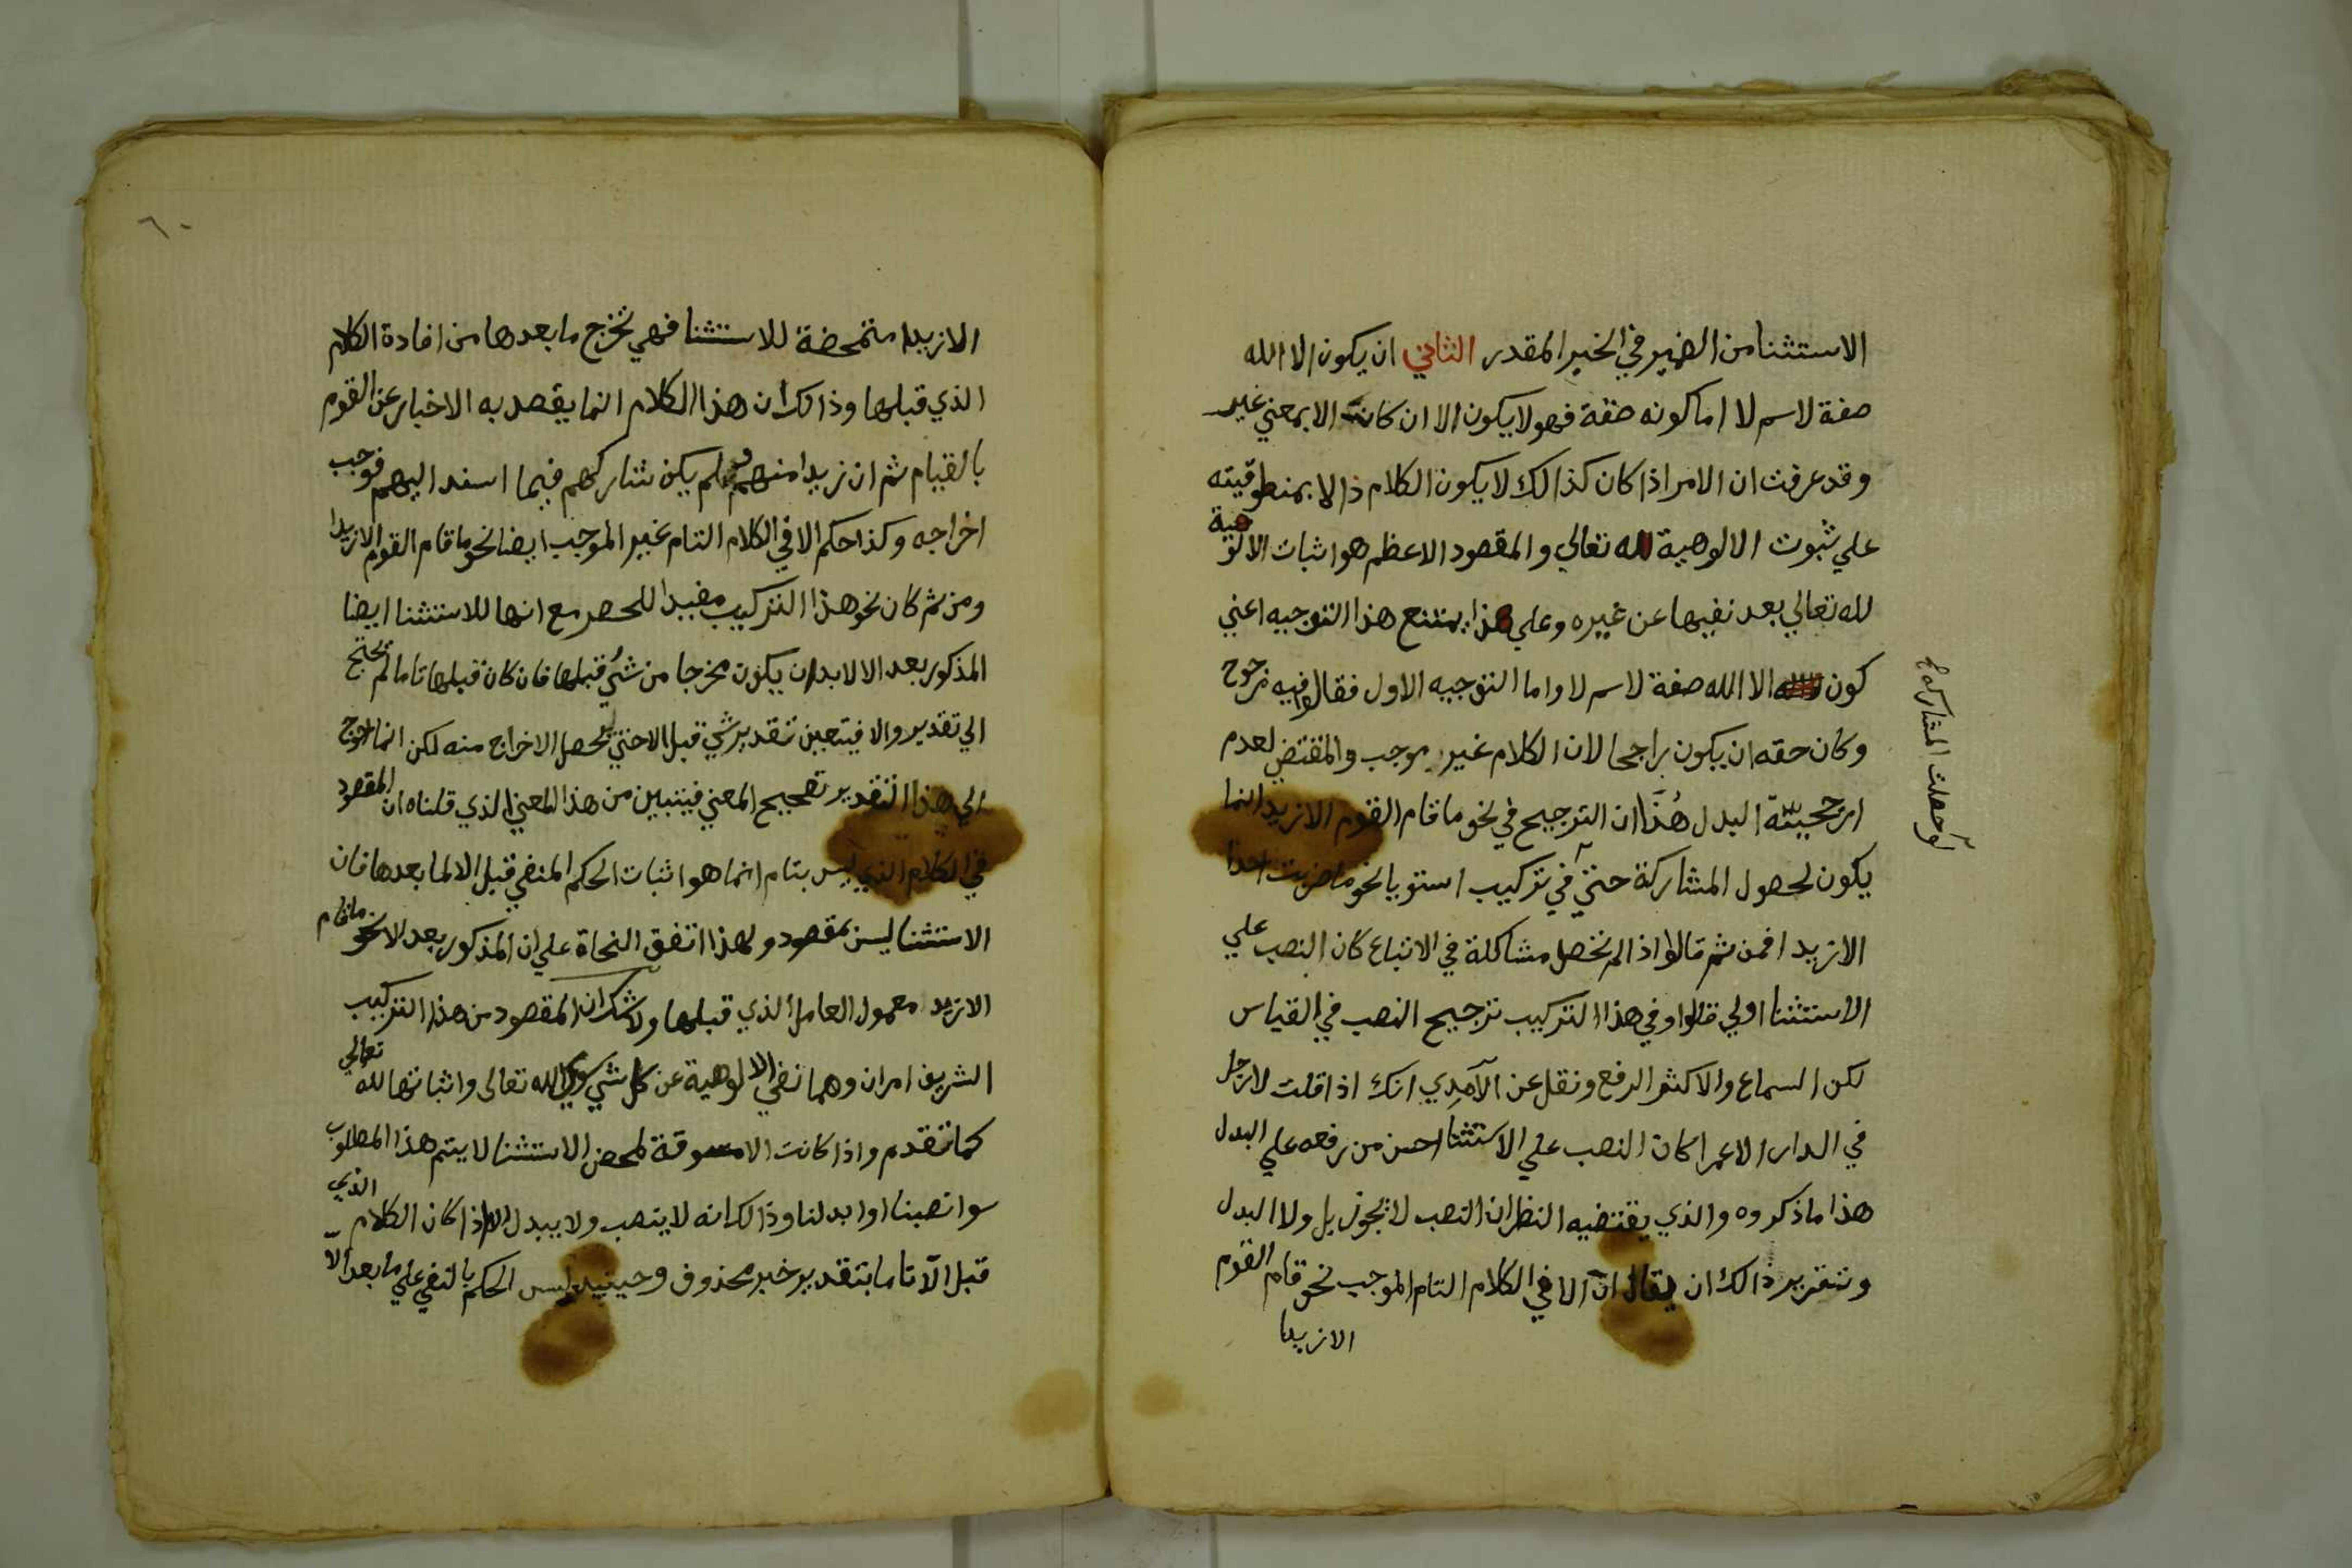 الاستثنا من الضمير في الخبر المقدر الثاني ان يكون الا الله
صفة لاسم لا اما كونه صفة فهو لا يكون الا ان كانت الا بمعني غير
وقد عرفت ان الامر اذا كان كذالك لا يكون الكلام دالا بمنطوقيته
علي ثبوت الالوهية لله تعالي والمقصود الاعظم هو اثبات الالوهية
لله تعالي بعد نفيها عن غيره وعلي هذا يمتنع هذا التوجيه اعني
كون الا الله صفة لاسم لا واما التوجيه الاول فقالوا فيه مرجوح
وكان حقه ان يكون راجحا لان الكلام غير موجب والمقتضي لعدم
ارجحيته البدل هُنَا ان الترجيح في نحو ما قام القوم الا زيد انما
يكون لحصول المشاركة حتي في تركيب استويا نحو ما ضربت احدا
الا زيدا فمن ثم قالوا اذا لم تحصل مشاكلة في الاتباع كان النصب علي
الاستثنا اولي قالوا وفي هذا التركيب ترجيح النصب في القياس
لكن السماع والاكثر الرفع ونقل عن الآمدي انك اذا قلت لا رجل
في الدار الا عمرا كان النصب علي الاستثنا احسن من رفعه علي البدل
هذا ما ذكروه والذي يقتضيه النظر ان النصب لا يجوز بل ولا البدل
وتقرير ذالك ان يقال ان الا في الكلام التام الموجب نحو قام القوم
الا زيدا
لو حصلت المشاركة
٦٠
الا زيدا متمحضة للاستثنا فهي تخرج ما بعدها من افادة الكلام
الذي قبلها وذالك ان هذا الكلام انما يقصد به الاخبار عن القوم
بالقيام ثم ان زيدا منهم ولم يكن شاركهم فيما اسند اليهم فوجب
اخراجه وكذا حكم الا في الكلام التام غير الموجب ايضا نحو ما قام القوم الا زيدا
ومن ثم كان نحو هذا التركيب مفيدا للحصر مع انها للاستثنا ايضا
المذكور بعد الا لابد ان يكون مخرجا من شيُ قبلها فان كان قبلها تاما لم يحتج
الي تقدير والا فيتعين تقدير شي قبل الا حتي يحصل الاخراج منه لكن انما احوج
الي هذا التقدير تصحيح المعني فيتبين من هذا المعني الذي قلناه ان المقصود
في الكلام الذي ليس بتام انما هو اثبات الحكم المنفي قبل الا لما بعدها فان
الاستثنا ليس بمقصود ولهذا اتفق النحاة علي ان المذكور بعد الا نحو ما قام
الا زيد معمول العامل الذي قبلها ولا شك ان المقصود من هذا التركيب
الشريف امران وهما نفي الالوهية عن كل شي سوي الله تعالي واثباتها لله تعالي
كما تقدم واذا كانت الا مسوقة لمحض الاستثنا لا يتم هذا المطلوب
سوا نصبنا او ابدلنا وذالك انه لا ينصب ولا يبدل الا اذا كان الكلام الذي
قبل الّا تاما بتقدير خبر محذوف وحينيد ليس الحكم بالنفي علي ما بعد الّا